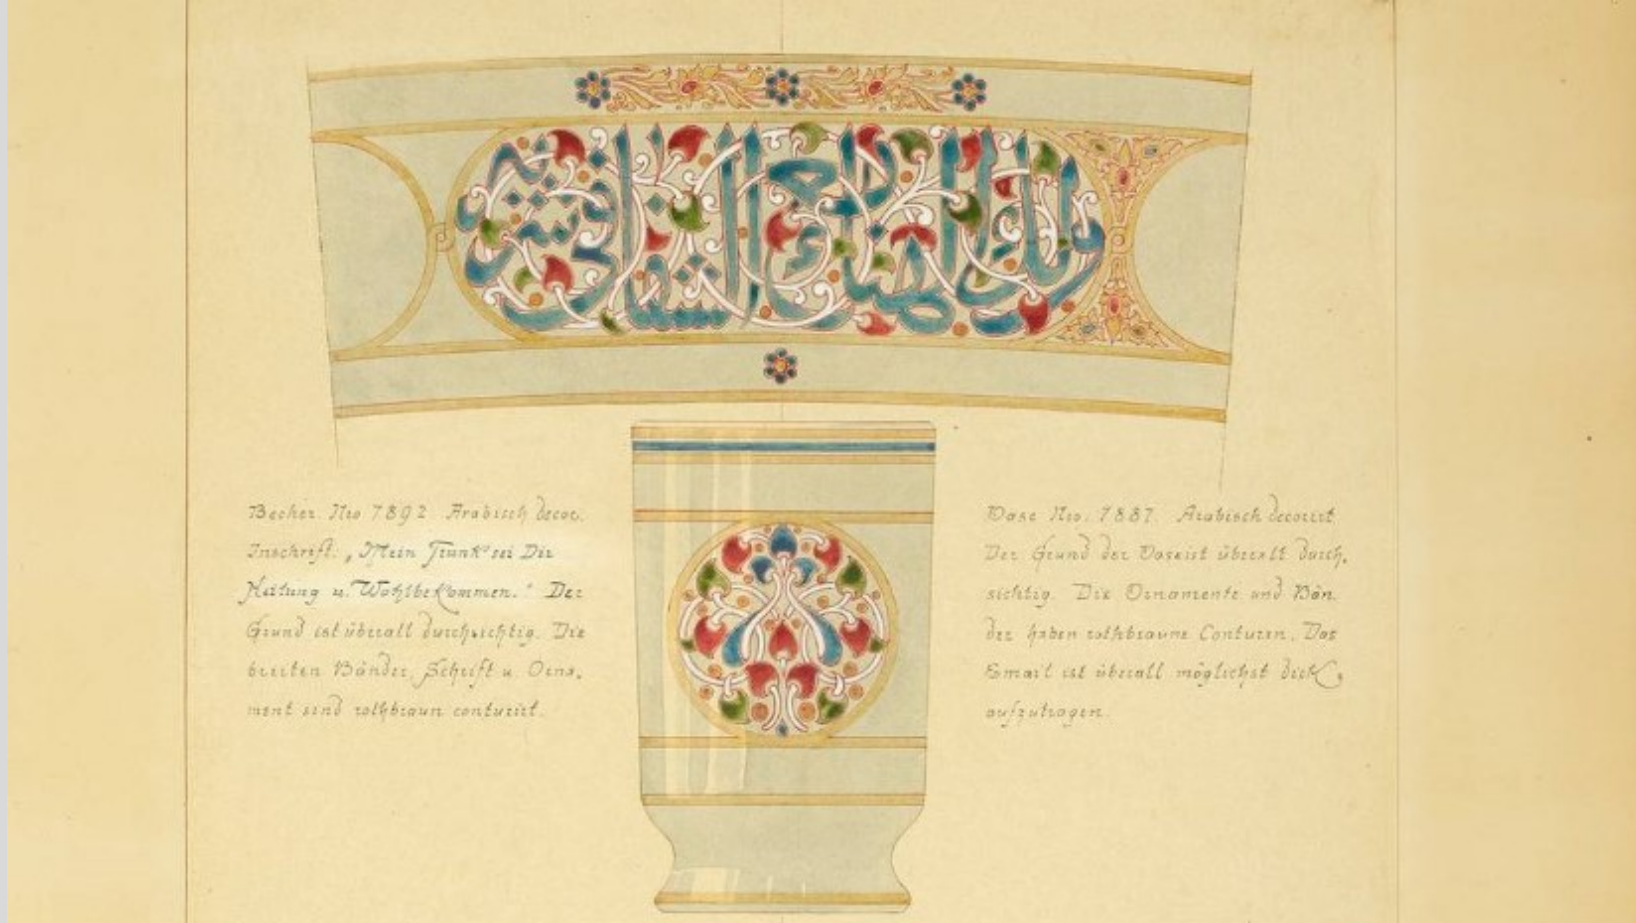 ولك الهناء الشفاء في
Becher. Nro 7892. Arabisch decor.
Inschrift: „Mein Trunk sei Dir
Heilung u. Wohlbekommen.“ Der
Grund ist überall durchsichtig. Die
breiten Bänder, Schrift u. Orna-
ment sind rothbraun conturirt.
Vase Nro. 7887. Arabisch decorirt
Der Grund der Vase ist überall durch-
sichtig. Die Ornamente und Bän-
der haben rothbraune Conturen. Das
Email ist überall möglichst dick
aufzutragen.